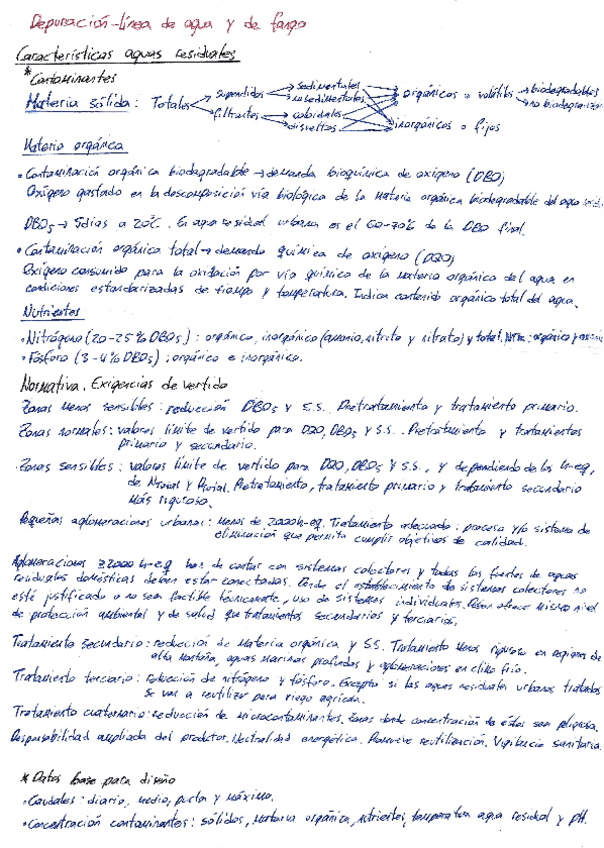 Depuración - línea de agua y de fango
Características aguas residuales
* Contaminantes
Materia sólida: Totales suspendidos sedimentables orgánicos o volátiles biodegradables
no sedimentables no biodegradables
filtrantes coloidales
disueltos inorgánicos o fijos
Materia orgánica
• Contaminación orgánica biodegradable → demanda bioquímica de oxígeno (DBO)
Oxígeno gastado en la descomposición vía biológica de la materia orgánica biodegradable del agua
DBO5 → 5 días a 20ºC. En agua residual urbana es el 60-70% de la DBO final.
• Contaminación orgánica total → demanda química de oxígeno (DQO)
Oxígeno consumido para la oxidación por vía química de la materia orgánica del agua en
condiciones estandarizadas de tiempo y temperatura. Indica contenido orgánico total del agua.
Nutrientes
• Nitrógeno (20-25% DBO5): orgánico, inorgánico (amonio, nitrito y nitrato) y total. NTK: orgánico y
• Fósforo (3-4% DBO5): orgánico e inorgánico.
Normativa. Exigencias de vertido
Zonas menos sensibles: reducción DBO5 y S.S. Pretratamiento y tratamiento primario.
Zonas normales: valores límite de vertido para DQO, DBO5 y S.S. Pretratamiento y tratamientos
primario y secundario.
Zonas sensibles: valores límite de vertido para DQO, DBO5 y S.S., y dependiendo de los h-eq,
de Ntotal y Ptotal. Pretratamiento, tratamiento primario y tratamiento secundario
más riguroso.
Pequeñas aglomeraciones urbanas: menos de 2000 h-eq. Tratamiento adecuado: proceso y/o sistema de
eliminación que permita cumplir objetivos de calidad.
Aglomeraciones ≥ 2000 h-eq han de contar con sistemas colectores y todas las fuentes de aguas
residuales domésticas deben estar conectadas. Donde el establecimiento de sistemas colectores no
esté justificado o no sea factible técnicamente, uso de sistemas individuales. Deben ofrecer mismo nivel
de protección ambiental y de salud que tratamientos secundarios y terciarios.
Tratamiento secundario: reducción de materia orgánica y SS. Tratamiento menos riguroso en regiones de
alta montaña, aguas marinas profundas y aglomeraciones en clima frío.
Tratamiento terciario: reducción de nitrógeno y fósforo. Excepto si las aguas residuales urbanas tratadas
se van a reutilizar para riego agrícola.
Tratamiento cuaternario: reducción de microcontaminantes. Zonas donde concentración de éstos sea peligrosa.
Responsabilidad ampliada del productor. Neutralidad energética. Promueve reutilización. Vigilancia sanitaria.
* Datos base para diseño
• Caudales: diario, medio, punta y máximo.
• Concentración contaminantes: sólidos, materia orgánica, nutrientes, temperatura agua residual y pH.